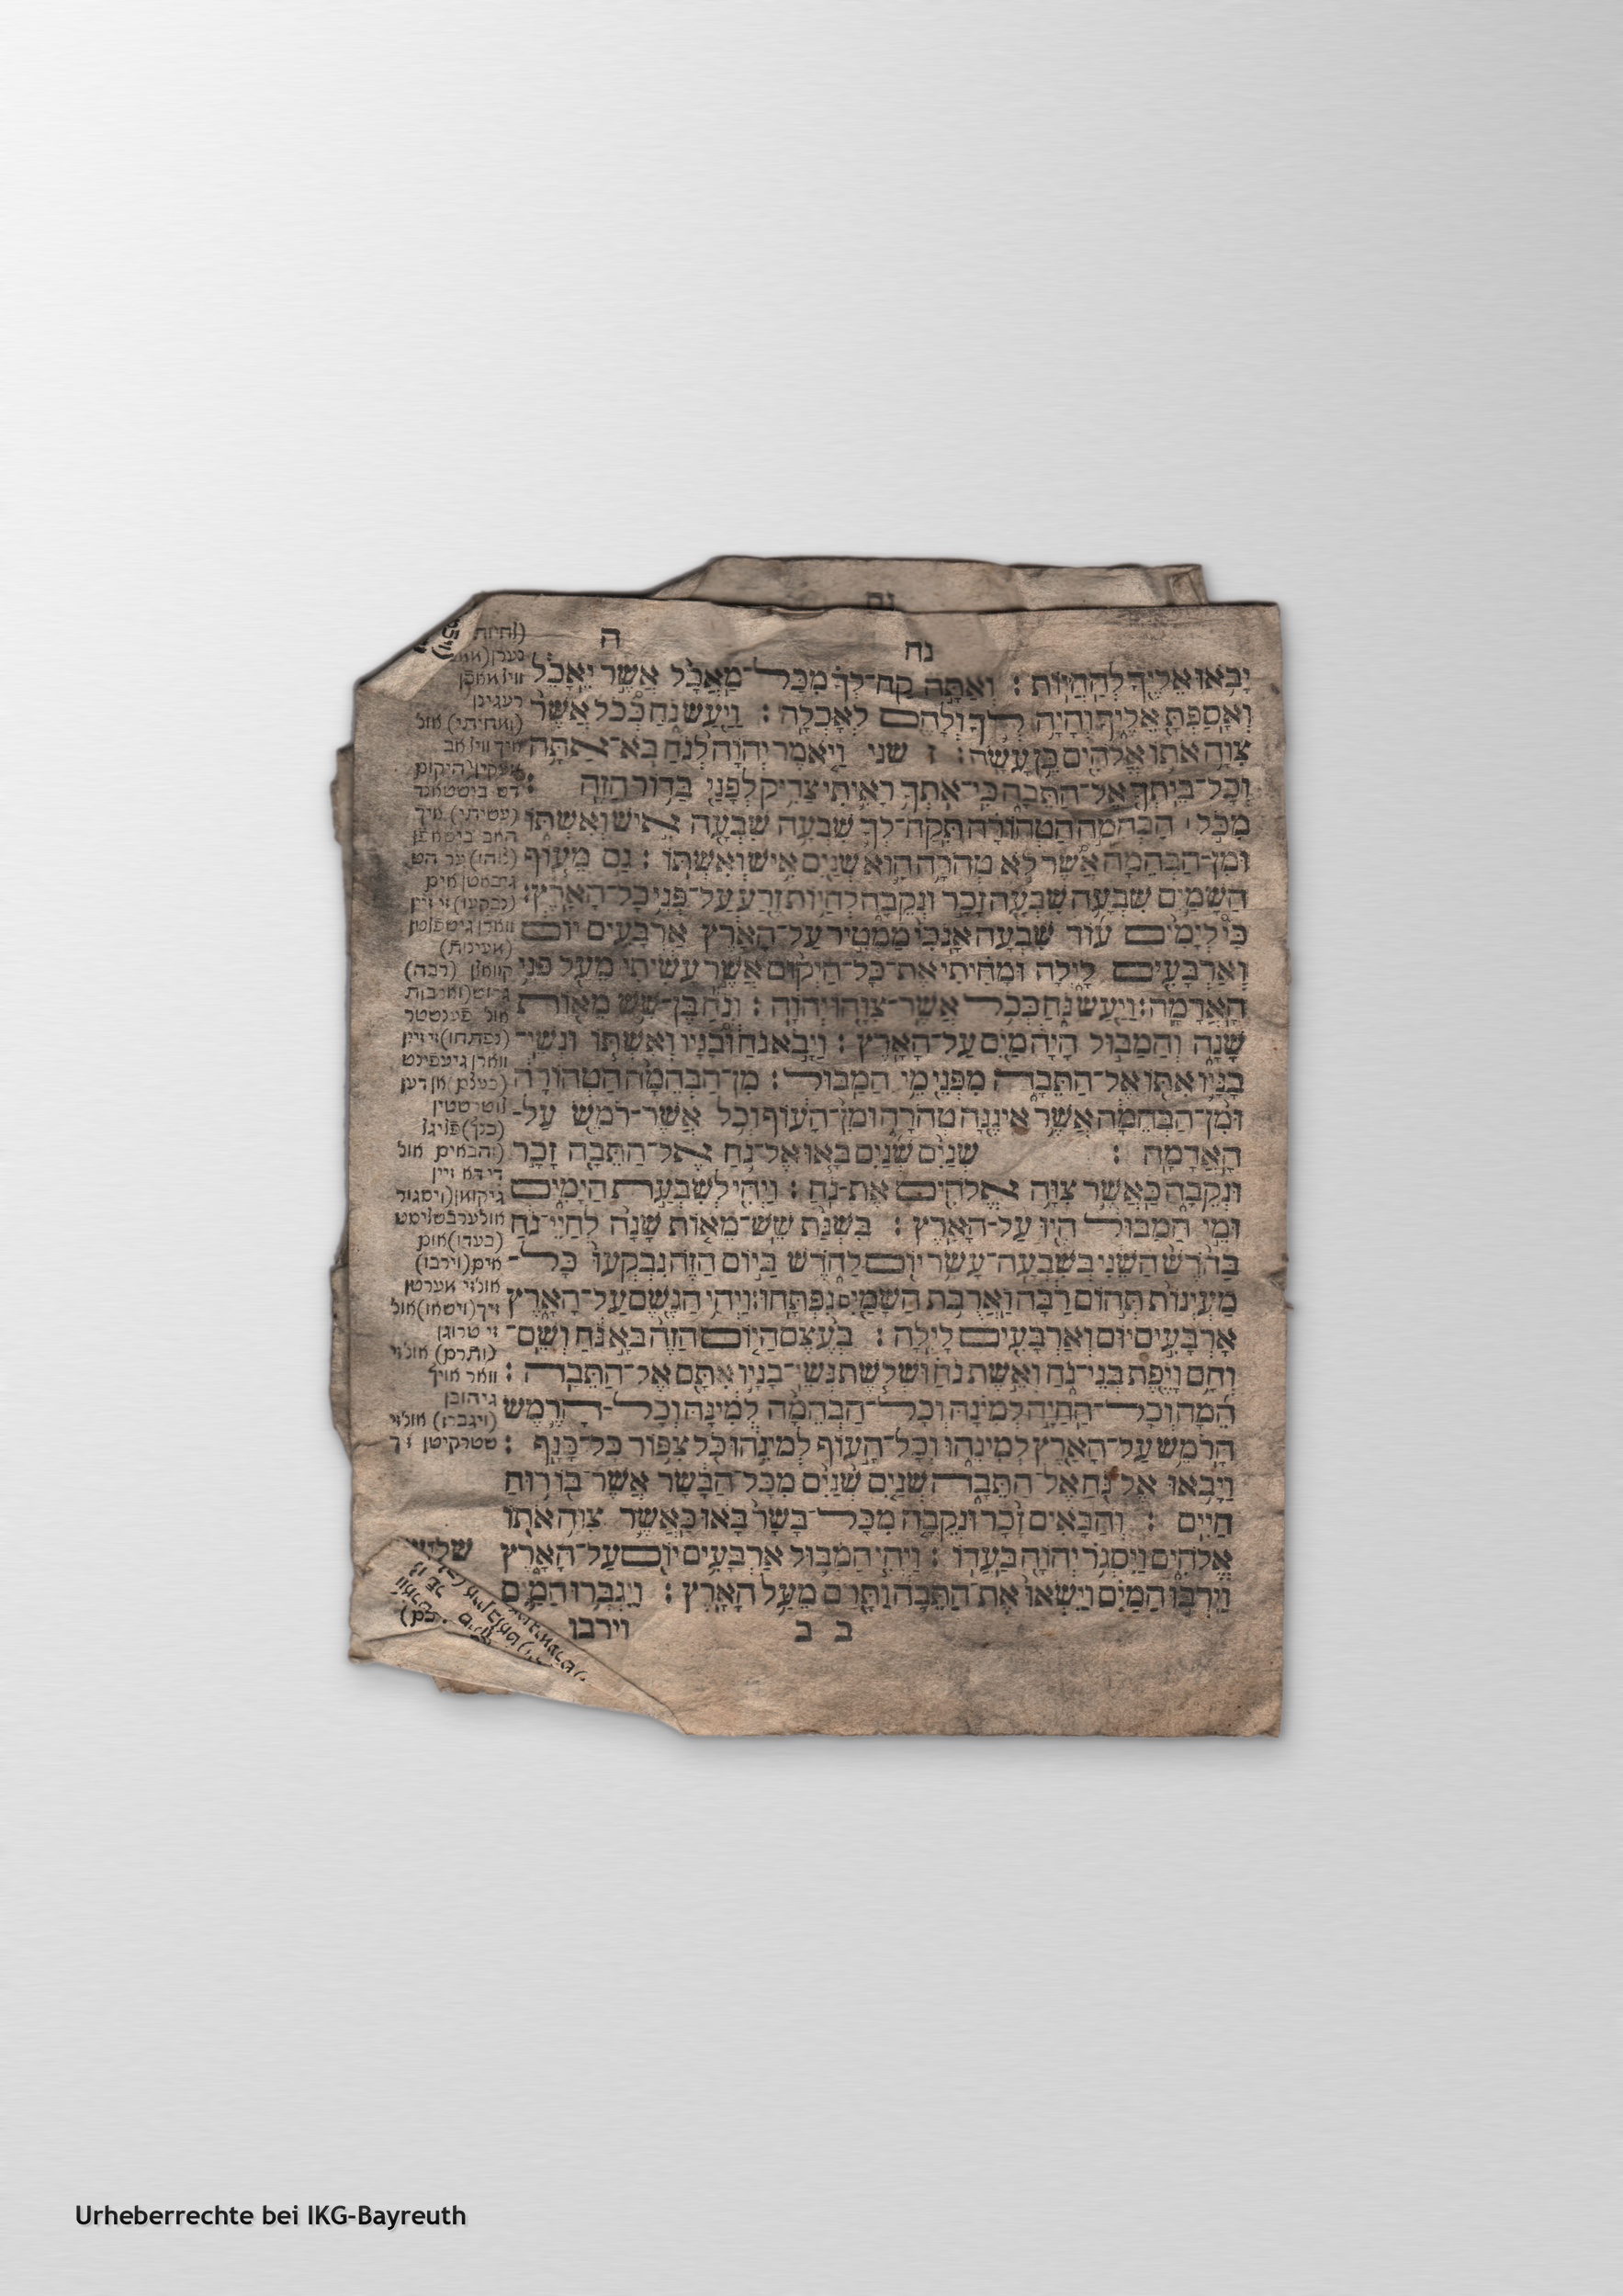 נח
נח
ה
יָבֹאוּ אֵלֶיךָ לְהַחֲיוֹת : וְאַתָּה קַח־לְךָ מִכָּל־מַאֲכָל אֲשֶׁר יֵאָכֵל
וְאָסַפְתָּ אֵלֶיךָ וְהָיָה לְךָ וְלָהֶם לְאָכְלָה : וַיַּעַשׂ נֹחַ כְּכֹל אֲשֶׁר
צִוָּה אֹתוֹ אֱלֹהִים כֵּן עָשָׂה : ז שני וַיֹּאמֶר יְהוָֹה לְנֹחַ בֹּא־אַתָּה
וְכָל־בֵּיתְךָ אֶל־הַתֵּבָה כִּי־אֹתְךָ רָאִיתִי צַדִּיק לְפָנַי בַּדּוֹר הַזֶּה :
מִכֹּל הַבְּהֵמָה הַטְּהוֹרָה תִּקַּח־לְךָ שִׁבְעָה שִׁבְעָה אִישׁ וְאִשְׁתּוֹ
וּמִן־הַבְּהֵמָה אֲשֶׁר לֹא טְהֹרָה הִוא שְׁנַיִם אִישׁ וְאִשְׁתּוֹ : גַּם מֵעוֹף
הַשָּׁמַיִם שִׁבְעָה שִׁבְעָה זָכָר וּנְקֵבָה לְחַיּוֹת זֶרַע עַל־פְּנֵי כָל־הָאָרֶץ :
כִּי לְיָמִים עוֹד שִׁבְעָה אָנֹכִי מַמְטִיר עַל־הָאָרֶץ אַרְבָּעִים יוֹם
וְאַרְבָּעִים לָיְלָה וּמָחִיתִי אֶת־כָּל־הַיְקוּם אֲשֶׁר עָשִׂיתִי מֵעַל פְּנֵי
הָאֲדָמָה : וַיַּעַשׂ נֹחַ כְּכֹל אֲשֶׁר־צִוָּהוּ יְהוָֹה : וְנֹחַ בֶּן־שֵׁשׁ מֵאוֹת
שָׁנָה וְהַמַּבּוּל הָיָה מַיִם עַל־הָאָרֶץ : וַיָּבֹא נֹחַ וּבָנָיו וְאִשְׁתּוֹ וּנְשֵׁי־
בָנָיו אִתּוֹ אֶל־הַתֵּבָה מִפְּנֵי מֵי הַמַּבּוּל : מִן־הַבְּהֵמָה הַטְּהוֹרָה
וּמִן־הַבְּהֵמָה אֲשֶׁר אֵינֶנָּה טְהֹרָה וּמִן־הָעוֹף וְכֹל אֲשֶׁר־רֹמֵשׂ עַל־
הָאֲדָמָה : שְׁנַיִם שְׁנַיִם בָּאוּ אֶל־נֹחַ אֶל־הַתֵּבָה זָכָר
וּנְקֵבָה כַּאֲשֶׁר צִוָּה אֱלֹהִים אֶת־נֹחַ : וַיְהִי לְשִׁבְעַת הַיָּמִים
וּמֵי הַמַּבּוּל הָיוּ עַל־הָאָרֶץ : בִּשְׁנַת שֵׁשׁ־מֵאוֹת שָׁנָה לְחַיֵּי־נֹחַ
בַּחֹדֶשׁ הַשֵּׁנִי בְּשִׁבְעָה־עָשָׂר יוֹם לַחֹדֶשׁ בַּיּוֹם הַזֶּה נִבְקְעוּ כָּל־
מַעְיְנוֹת תְּהוֹם רַבָּה וַאֲרֻבֹּת הַשָּׁמַיִם נִפְתָּחוּ : וַיְהִי הַגֶּשֶׁם עַל־הָאָרֶץ
אַרְבָּעִים יוֹם וְאַרְבָּעִים לָיְלָה : בְּעֶצֶם הַיּוֹם הַזֶּה בָּא נֹחַ וְשֵׁם־
וְחָם וָיֶפֶת בְּנֵי־נֹחַ וְאֵשֶׁת נֹחַ וּשְׁלֹשֶׁת נְשֵׁי־בָנָיו אִתָּם אֶל־הַתֵּבָה :
הֵמָּה וְכָל־הַחַיָּה לְמִינָהּ וְכָל־הַבְּהֵמָה לְמִינָהּ וְכָל־הָרֶמֶשׂ
הָרֹמֵשׂ עַל־הָאָרֶץ לְמִינֵהוּ וְכָל־הָעוֹף לְמִינֵהוּ כֹּל צִפּוֹר כָּל־כָּנָף :
וַיָּבֹאוּ אֶל נֹחַ אֶל־הַתֵּבָה שְׁנַיִם שְׁנַיִם מִכָּל־הַבָּשָׂר אֲשֶׁר־בּוֹ רוּחַ
חַיִּים : וְהַבָּאִים זָכָר וּנְקֵבָה מִכָּל־בָּשָׂר בָּאוּ כַּאֲשֶׁר צִוָּה אֹתוֹ
אֱלֹהִים וַיִּסְגֹּר יְהוָֹה בַּעֲדוֹ : וַיְהִי הַמַּבּוּל אַרְבָּעִים יוֹם עַל־הָאָרֶץ
וַיִּרְבּוּ הַמַּיִם וַיִּשְׂאוּ אֶת־הַתֵּבָה וַתָּרָם מֵעַל הָאָרֶץ : וַיִּגְבְּרוּ הַמַּיִם
ב ב וירבו
רעגינן
(ומחיתי) אול
איך וויא אב
היקום
(עשיתי) איך
(נבקעו) זי זיין
(מעינות)
קוועלן (רבה)
אול פענשטר
(נפתחו) זי זיין
(כנף) פליגל
(והבאים אול
די דא זיין
גיקומן (ויסגור
(בעדו) אום
אים (וירבו)
זיך (וישאו) אול
זי טרוגן
(ותרם) אול זי
וואר אויך
גיהובן
(ויגברו) אול זי
שטרקיטן זיך
שלישי
Urheberrechte bei IKG-Bayreuth